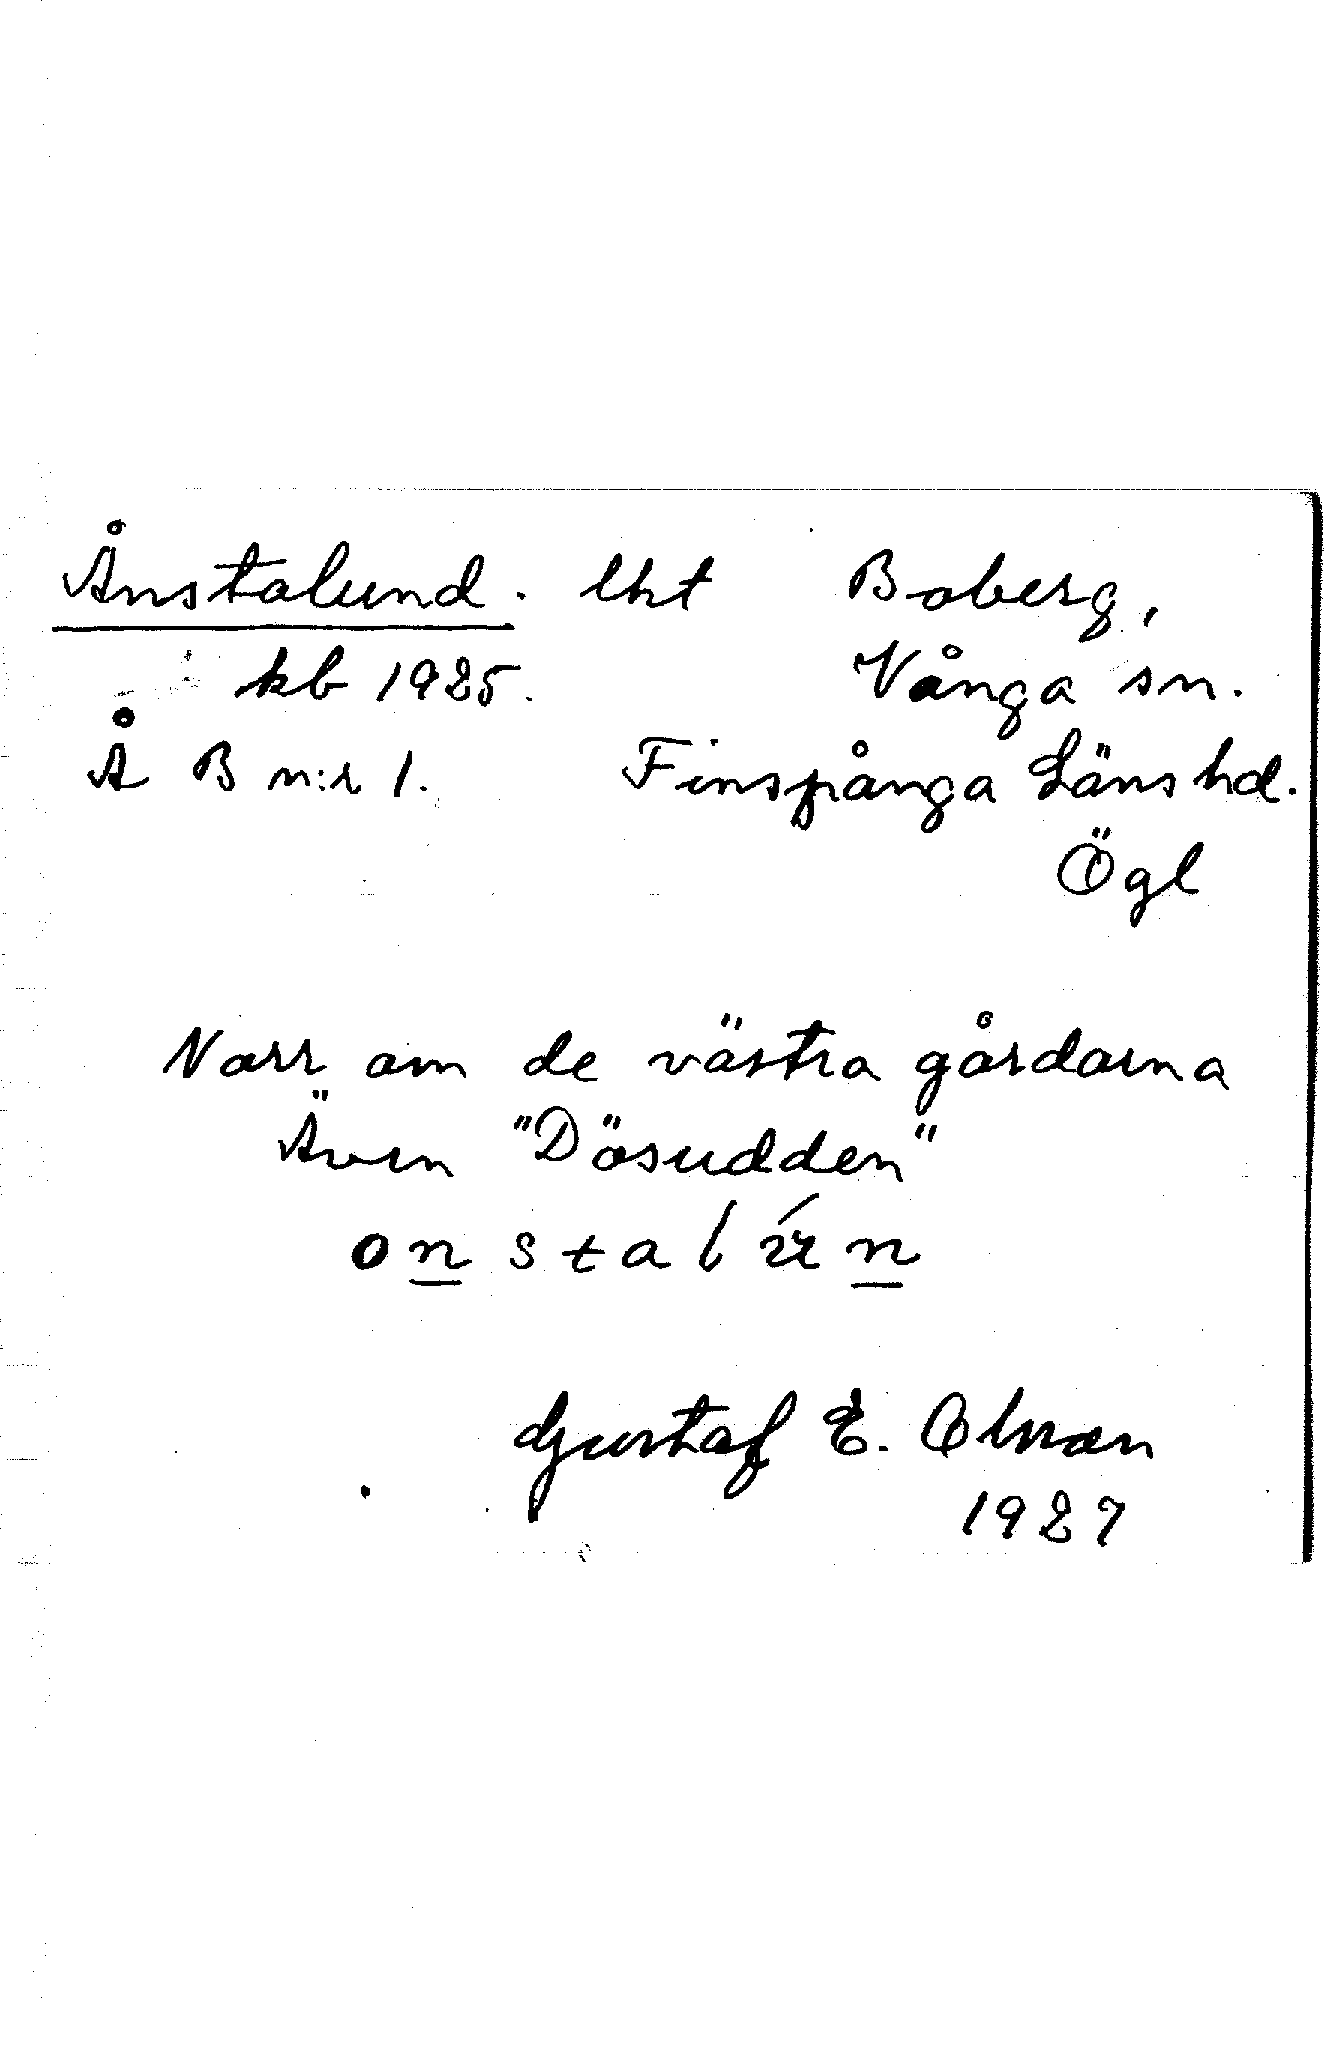 Ånstalund. lht Boberg,
kb 1925. Vånga sn.
Å B n:r 1. Finspånga Läns hd.
Ögl
Norr om de västra gårdarna
Även "Dösudden"
onstalún
Gustaf E. Olsson
1927